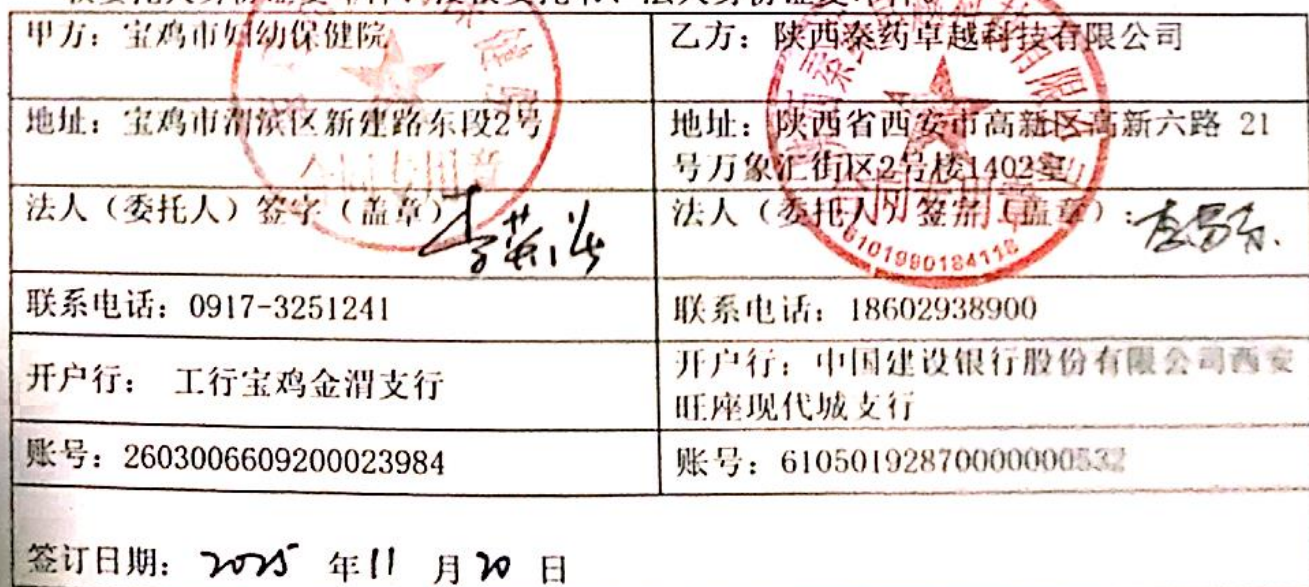 甲方：宝鸡市妇幼保健院
乙方：陕西秦药卓越科技有限公司
地址：宝鸡市渭滨区新建路东段2号
地址：陕西省西安市高新区高新六路 21
号万象汇街区2号楼1402室
合同专用章
合同专用章
法人（委托人）签字（盖章）
法人（委托人）签字（盖章）：
6101990184118
联系电话：0917-3251241
联系电话：18602938900
开户行： 工行宝鸡金渭支行
开户行：中国建设银行股份有限公司西安
旺座现代城支行
账号：2603006609200023984
账号：61050192870000000532
签订日期：2025 年11 月20 日